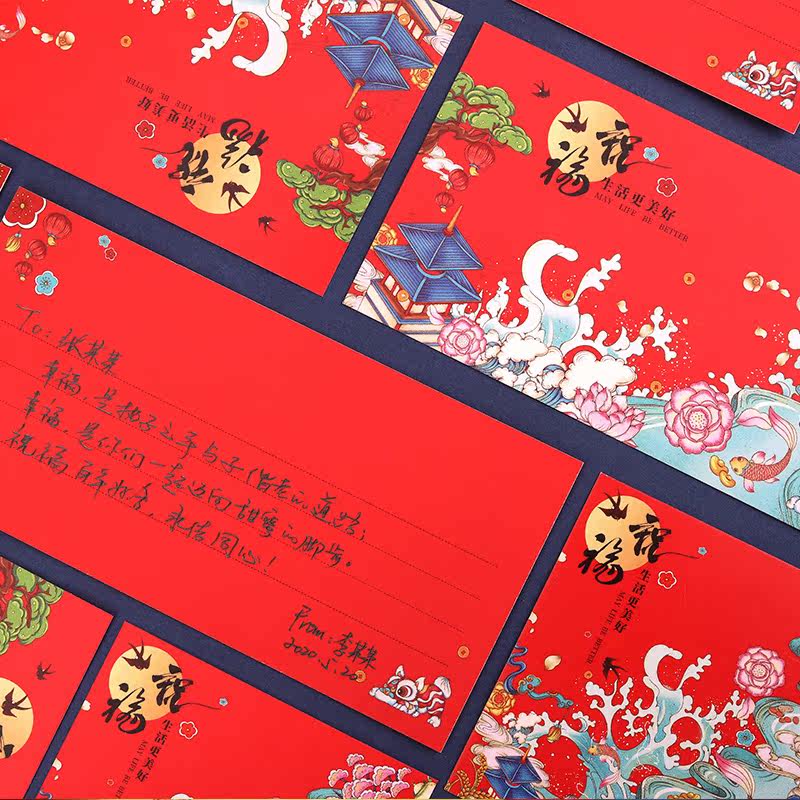 福
生活更美好
MAY LIFE BE BETTER
福
生活更美好
MAY LIFE BE BETTER
To: 张某某
幸福，是执子之手与子偕老的道路；
幸福，是你们一起迈向甜蜜的脚步。
祝福百年好合，永结同心！
From: 李某某
2020.5.20
福
生活更美好
MAY LIFE BE BETTER
福
生活更美好
MAY LIFE BE BETTER